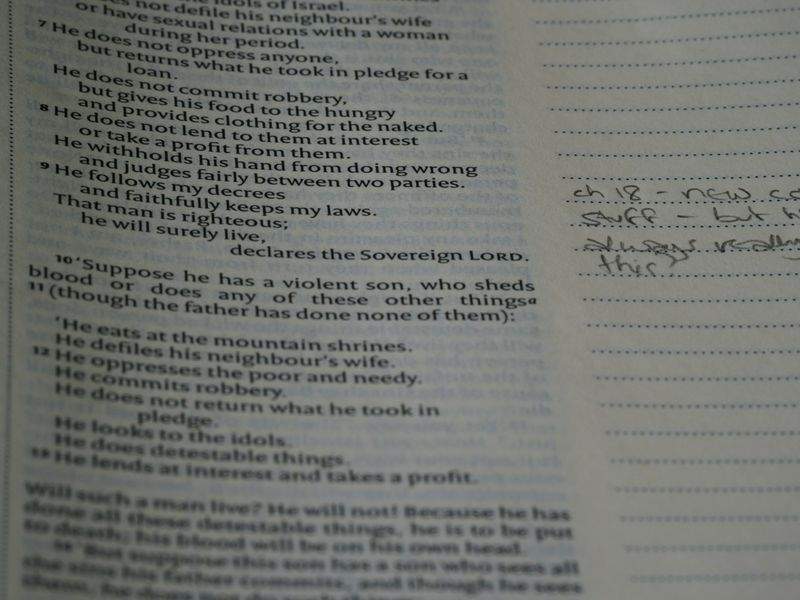 not defile his neighbour's wife
or have sexual relations with a woman
during her period.
7 He does not oppress anyone,
but returns what he took in pledge for a
loan.
He does not commit robbery,
but gives his food to the hungry
and provides clothing for the naked.
8 He does not lend to them at interest
or take a profit from them.
He withholds his hand from doing wrong
and judges fairly between two parties.
9 He follows my decrees
and faithfully keeps my laws.
That man is righteous;
he will surely live,
declares the Sovereign LORD.
10 'Suppose he has a violent son, who sheds
blood or does any of these other things a
11 (though the father has done none of them):
'He eats at the mountain shrines.
He defiles his neighbour's wife.
12 He oppresses the poor and needy.
He commits robbery.
He does not return what he took in
pledge.
He looks to the idols.
He does detestable things.
13 He lends at interest and takes a profit.
Will such a man live? He will not! Because he has
done all these detestable things, he is to be put
to death; his blood will be on his own head.
14 'But suppose this son has a son who sees all
the sins his father commits, and though he sees
them, he does not do such things:
ch 18 - new
stuff - but
always really
this?